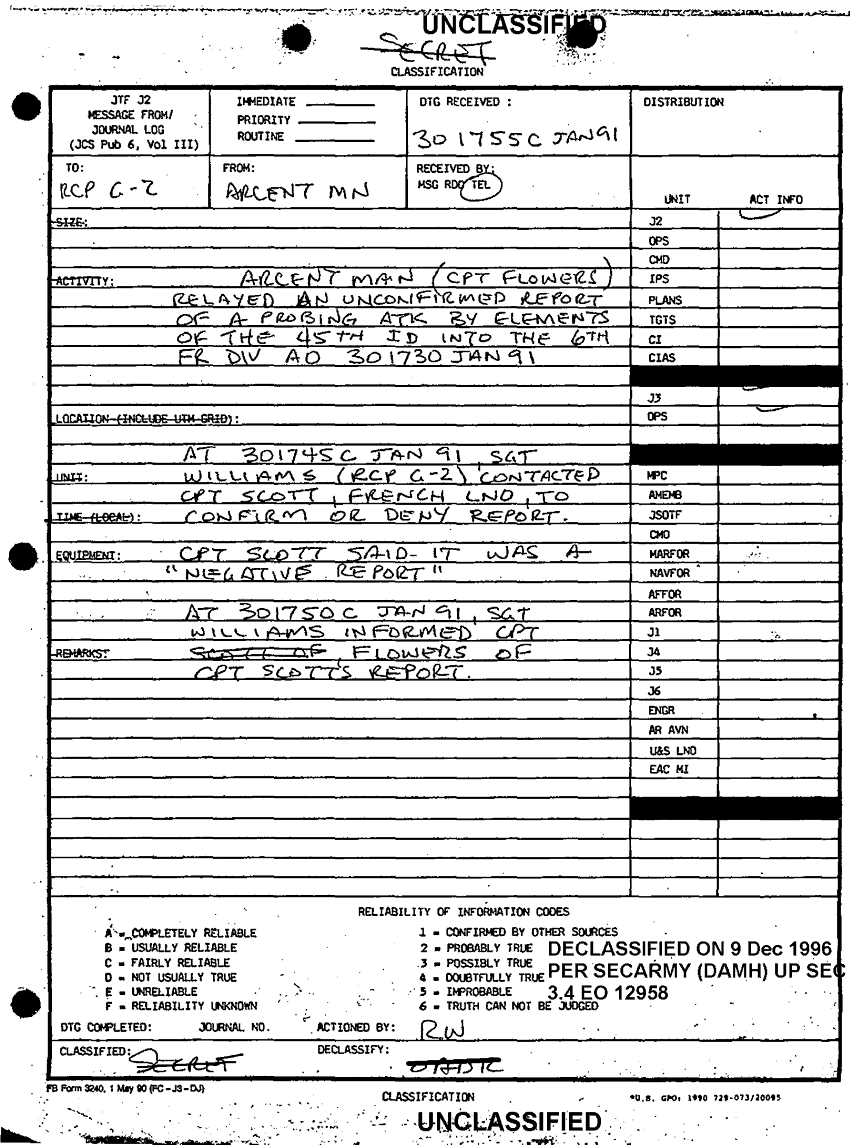 UNCLASSIFIED
SECRET
CLASSIFICATION
JTF J2
MESSAGE FROM/
JOURNAL LOG
(JCS Pub 6, Vol III)
IMMEDIATE
PRIORITY
ROUTINE
DTG RECEIVED :
301755C JAN91
DISTRIBUTION
TO:
RCP G-2
FROM:
ARCENT MN
RECEIVED BY:
MSG RDO TEL
UNIT ACT INFO
SIZE:
J2
OPS
CMD
ACTIVITY: ARCENT MAIN (CPT FLOWERS) IPS
RELAYED AN UNCONFIRMED REPORT PLANS
OF A PROBING ATK BY ELEMENTS TGTS
OF THE 45TH ID INTO THE 6TH CI
FR DIV AO 301730 JAN 91 CIAS
J3
LOCATION (INCLUDE UTM GRID): OPS
AT 301745C JAN 91, SGT
UNIT: WILLIAMS (RCP G-2) CONTACTED MPC
CPT SCOTT, FRENCH LNO, TO AMEMB
TIME (LOCAL): CONFIRM OR DENY REPORT. JSOTF
CMO
EQUIPMENT: CPT SCOTT SAID IT WAS A MARFOR
"NEGATIVE REPORT" NAVFOR
AFFOR
AT 301750C JAN 91, SGT ARFOR
WILLIAMS INFORMED CPT J1
REMARKS: SCOTT OF, FLOWERS OF J4
CPT SCOTT'S REPORT. J5
J6
ENGR
AR AVN
U&S LNO
EAC MI
RELIABILITY OF INFORMATION CODES
A = COMPLETELY RELIABLE 1 = CONFIRMED BY OTHER SOURCES
B = USUALLY RELIABLE 2 = PROBABLY TRUE
C = FAIRLY RELIABLE 3 = POSSIBLY TRUE
D = NOT USUALLY TRUE 4 = DOUBTFULLY TRUE
E = UNRELIABLE 5 = IMPROBABLE
F = RELIABILITY UNKNOWN 6 = TRUTH CAN NOT BE JUDGED
DECLASSIFIED ON 9 Dec 1996
PER SECARMY (DAMH) UP SEC
3.4 EO 12958
DTG COMPLETED: JOURNAL NO. ACTIONED BY: RW
CLASSIFIED: SECRET DECLASSIFY: OADR
FB Form 3240, 1 May 90 (FC-J3-DJ)
CLASSIFICATION
*U.S. GPO: 1990 729-073/20095
UNCLASSIFIED